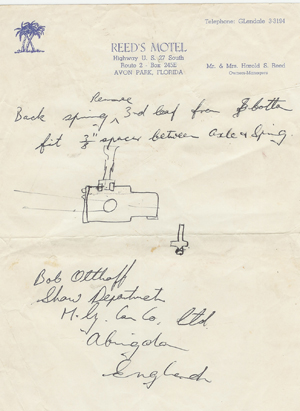 Telephone: GLendale 3-3194
REED'S MOTEL
Highway U. S. 27 South
Route 2 - Box 245E
AVON PARK, FLORIDA
Mr. & Mrs. Harold E. Reed
Owners-Managers
Remove
Back spring ^ 3rd leaf from bottom
fit ½" spacer between axle & Spring.
Bob Otthoff
Show Department
M.G. Car Co. Ltd.
Abingdon
England